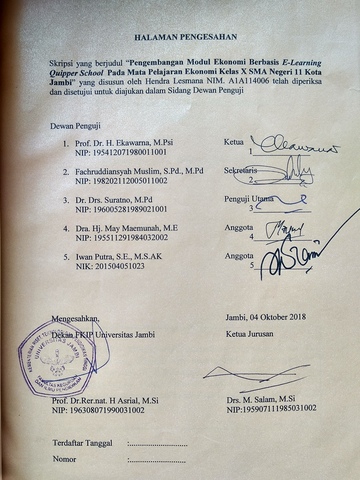 HALAMAN PENGESAHAN
Skripsi yang berjudul "Pengembangan Modul Ekonomi Berbasis E-Learning
Quipper School Pada Mata Pelajaran Ekonomi Kelas X SMA Negeri 11 Kota
Jambi" yang disusun oleh Hendra Lesmana NIM. A1A114006 telah diperiksa
dan disetujui untuk diajukan dalam Sidang Dewan Penguji
Dewan Penguji
1. Prof. Dr. H. Ekawarna, M.Psi Ketua
NIP: 195412071980011001 1
2. Fachruddiansyah Muslim, S.Pd., M.Pd Sekretaris
NIP: 198202112005011002 2
3. Dr. Drs. Suratno, M.Pd Penguji Utama
NIP: 196005281989021001 3
4. Dra. Hj. May Maemunah, M.E Anggota
NIP: 195511291984032002 4
5. Iwan Putra, S.E., M.S.AK Anggota
NIK: 201504051023 5
Mengesahkan, Jambi, 04 Oktober 2018
Dekan FKIP Universitas Jambi Ketua Jurusan
UNIVERSITAS JAMBI
Prof. Dr.Rer.nat. H Asrial, M.Si Drs. M. Salam, M.Si
NIP: 196308071990031002 NIP: 195907111985031002
Terdaftar Tanggal :...........................
Nomor :...........................